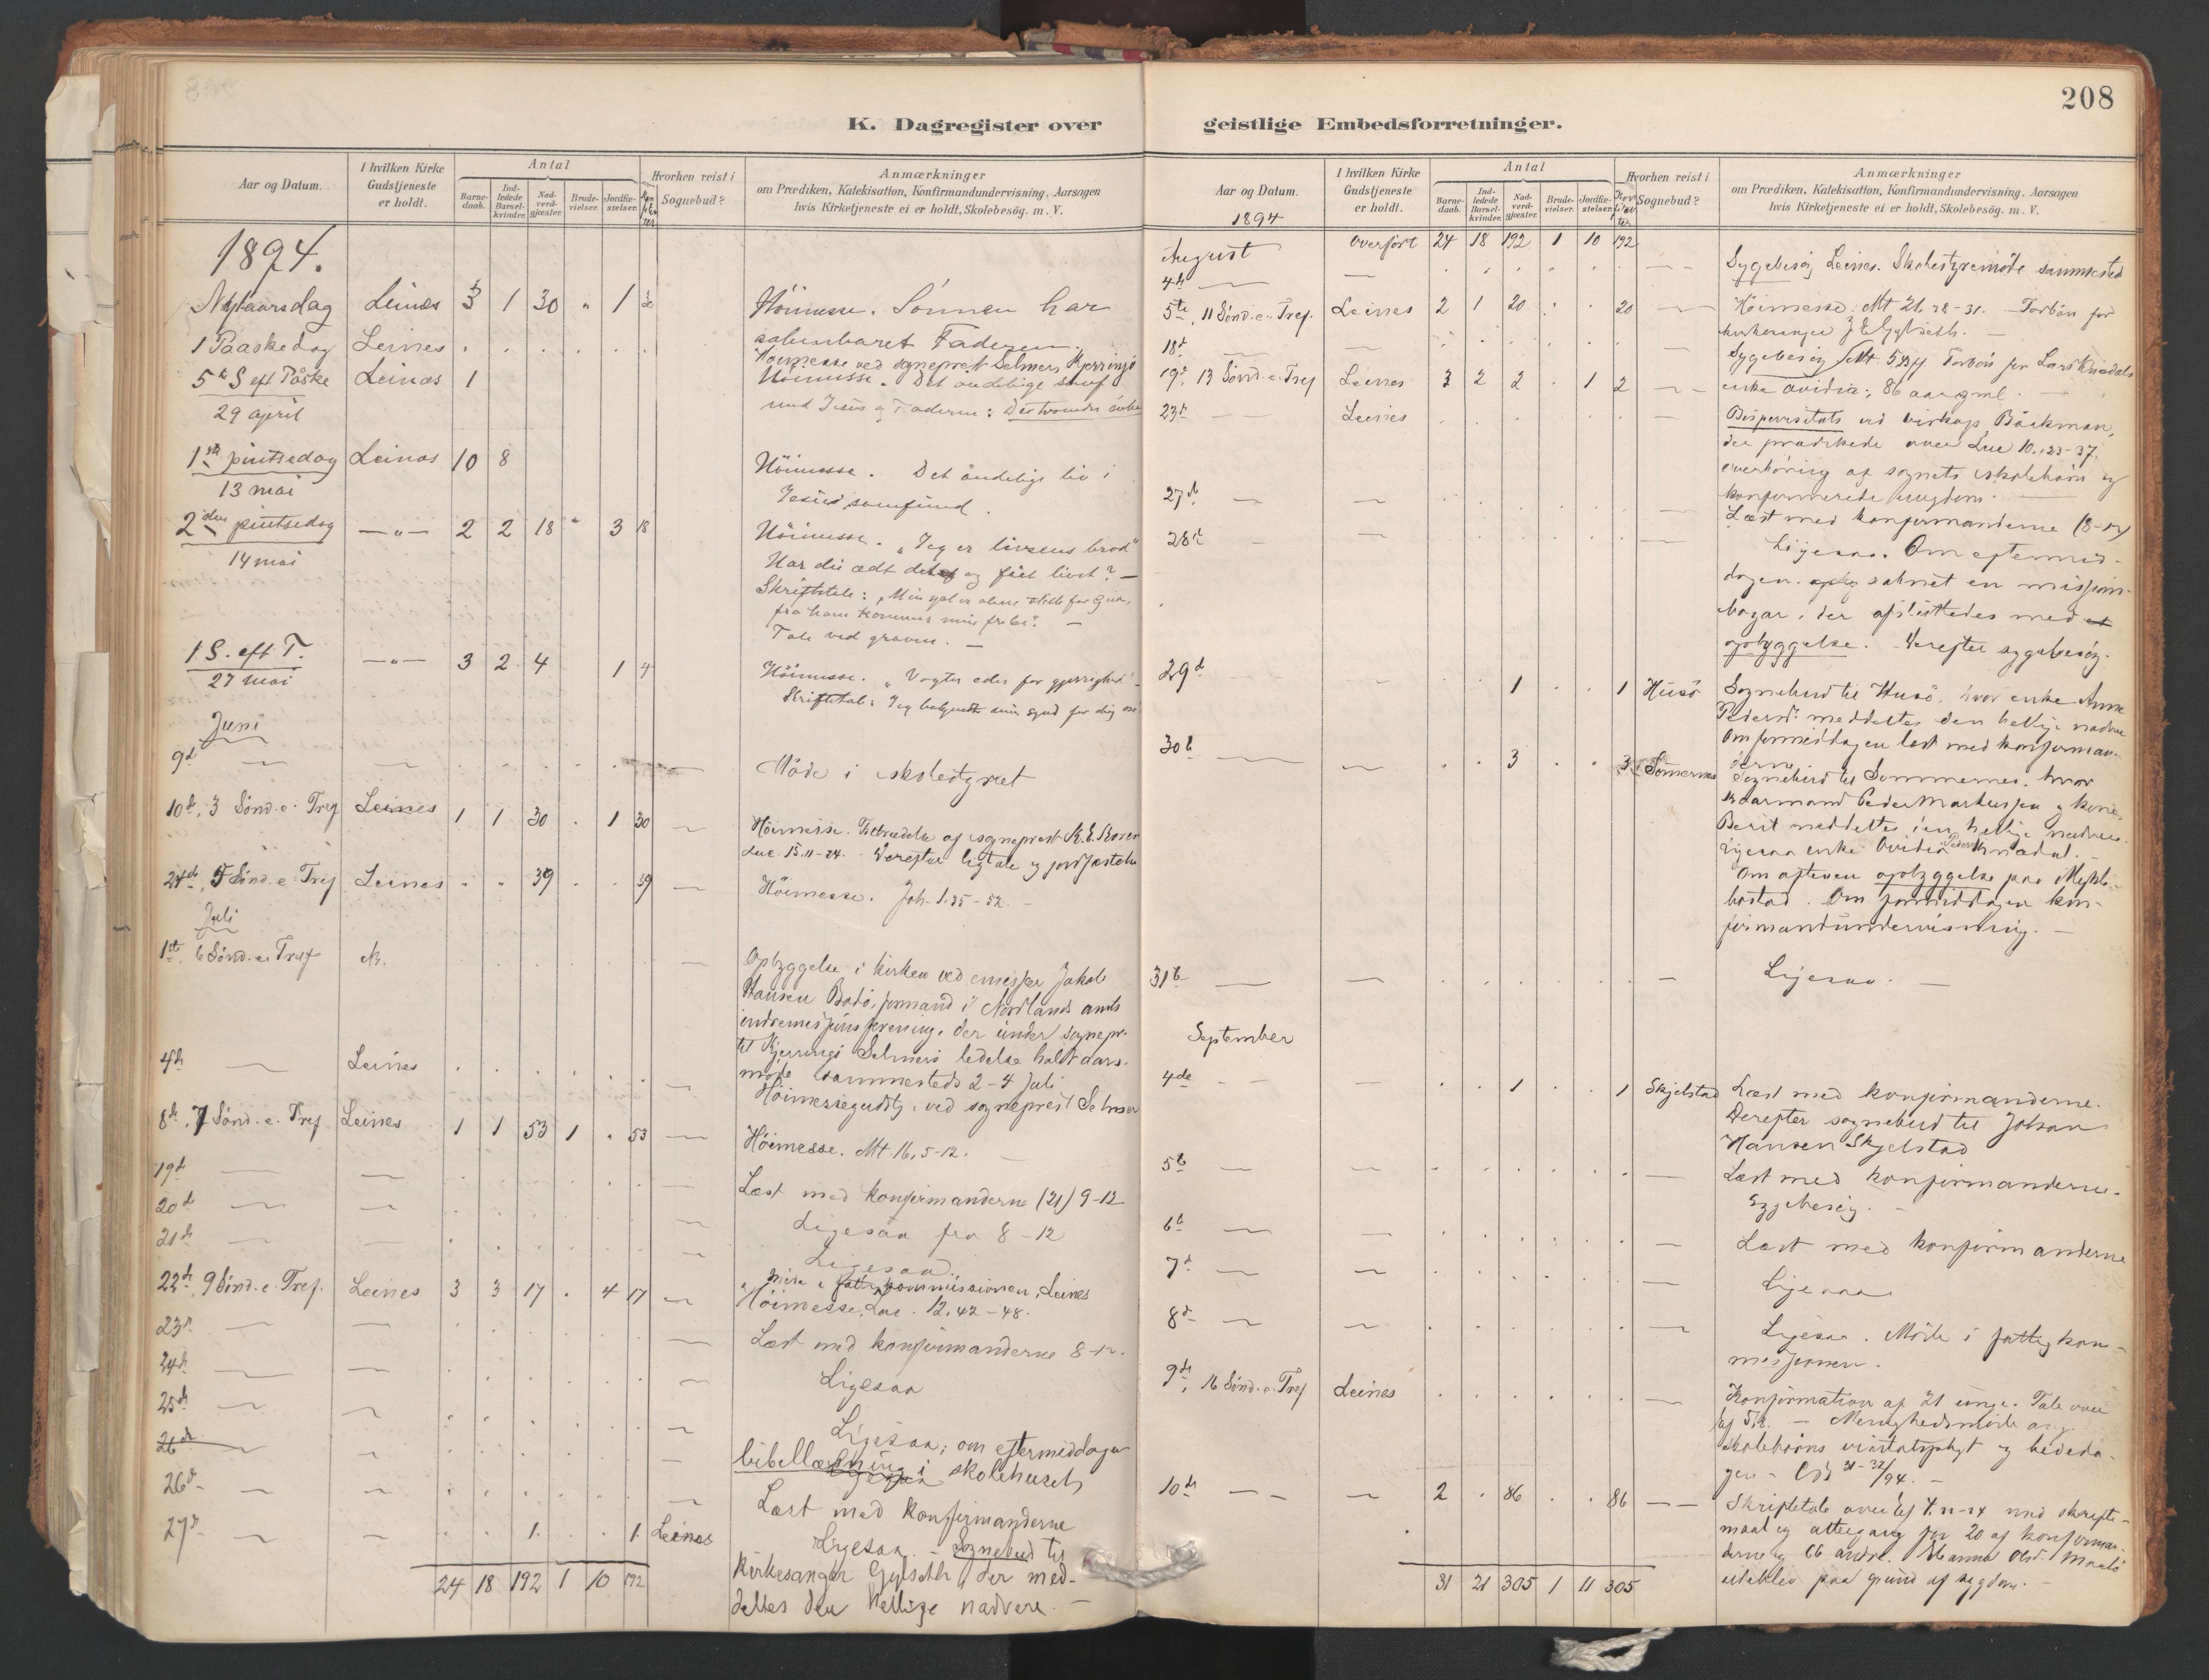 208
K. Dagregister over geistlige Embedsforretninger.
Aar og Datum.
I hvilken Kirke Gudstjeneste er holdt.
Antal
Barnedaab.
Indledede Barselkvinder.
Nadverdgjester.
Brudevielser.
Jordfæstelser.
Hvorhen reist i Sognebud?
Anmærkninger
om Prædiken, Katekisation, Konfirmandundervisning, Aarsagen
hvis Kirketjeneste ei er holdt, Skolebesög. m. V.
1894.
Nytaarsdag Leines 3 1 30 " 1 Höimesse. Sönnen har
aabenbaret Faderen.
1 Paaskedag Leines . . . . . Höimesse ved sogneprest Selmer, Kjerringö
5te S eft Påske Leines 1 Höimesse. Det åndelige
29 april med Jesus og Faderen:
1ste pintsedag Leines 10 8 Höimesse. Det åndelige liv i
13 mai Jesus samfund.
2den pintsedag —"— 2 2 18 " 3 18 Höimesse. "Jeg er livsens brød"
14 mai Har du ædt deraf og fået livet? —
Skriftetale: "Min sjæl er alene stille for Gud,
fra ham kommer min frelse". —
Tale ved graven. —
1 S. eft T. —"— 3 2 4 1 4 Höimesse. "Vogter eder for gjerrighed"
27 mai Skriftetale: Jeg bekjendte min synd for dig
Juni
9de — — Möde i skolestyret
10de, 3 Sönd. e. Tref Leines 1 1 30 . 1 30 — Höimesse. Tiltrædelse af sogneprest K. E.
Luc 15.11-24. Derefter ligtale og jordfæstelse
24de, 5 Sönd. e. Tref Leines . . 39 . . 39 — Höimesse. Joh. 1.35-52. —
Juli
1ste, 6 Sönd. e. Tref — Opbyggelse i kirken ved emissær Jakob
Hansen Bodö, formand i Nordlands amts
indremisjonsforening, der under sognepr.
til Kjerringö Selmers ledelse holdt aars-
möde sammesteds 2-4 Juli
4de — Leines . . . . . — Höimessegudstj. ved sogneprest Selmer
8de, 7 Sönd. e. Tref Leines 1 1 53 1 . 53 — Höimesse. Mt 16,5-12.
19de — — Læst med konfirmanderne (21) 9-12
20de — — Ligesaa fra 8-12
21de — — Ligesaa.
Möde i fattigkommissionen, Leines
22de, 9 Sönd. e. Tref. Leines 3 3 17 . 4 17 — Höimesse, Luc. 12,42-48.
23de — — Læst med konfirmanderne 8-12.
24de — — Ligesaa
25de — — Ligesaa; om eftermiddagen
26de — bibellæsning i skolehuset
26de — — Læst med konfirmanderne
27de — — . . 1 . . 1 Leines Ligesaa. — Sognebud til
kirkesanger Gylseth, der med-
deltes den hellige nadvere. —
24 18 192 1 10 192
Aar og Datum.
1894
I hvilken Kirke Gudstjeneste er holdt.
Antal
Barnedaab.
Indledede Barselkvinder.
Nadverdgjester.
Brudevielser.
Jordfæstelser.
Hvorhen reist i Sognebud?
Anmærkninger
om Prædiken, Katekisation, Konfirmandundervisning, Aarsagen
hvis Kirketjeneste ei er holdt, Skolebesög. m. V.
August Overfört 24 18 192 1 10 192
4de — — Sygebesög Leines. Skolestyremöde sammested
5te, 11 Sönd. e. Tref. Leines 2 1 20 . . 20 — Höimesse. Mt 21,28-31. Forbön for
kirkesanger Gylseth. —
18de — — Sygebesög
19de, 13 Sönd. e. Tref Leines 3 2 2 . 1 2 — Mt. 5, Forbön for Lars
enke Ovidia; 86 aar gml. —
23de — Leines . . . . . — Bispevisitats ved biskop Böckman,
der prædikede over Luc 10.23-37.
overhöring af sognets skolebörn og
konfirmerede ungdom. —
27de — — Læst med konfirmanderne (8-12)
28de — — Ligesaa. Om eftermid-
dagen saluet en missjons-
bazar, der afsluttedes med et
opbyggelse. Derefter sygebesög.
29de . . 1 . . 1 Husö Sognebud til Husö, hvor enke Anne
Pedersdr. meddeltes den hellige nadvere
Om formiddagen læst med konfirman-
derne.
30te — — . . 3 . . 3 Somernes Sognebud til Sommernes, hvor
kaarmand Peder Markussen og kone
Berit meddeltes den hellige nadvere.
Ligesaa enke Ovidia Pedersdr.
Om aftenen opbyggelse paa
Om formiddagen kon-
firmandundervisning. —
31te — — Ligesaa. —
September
4de — . . 1 . . 1 Skjelstad Læst med konfirmanderne.
Derefter sognebud til Johan
Hansen Skjelstad
5te — — Læst med konfirmanderne.
Sygebesög. —
6te — — Læst med konfirmanderne
7de — — Ligesaa
8de — — Ligesaa. Möde i fattigkom-
misjonen.
9de, 16 Sönd. e. Tref Leines . . . . . — Konfirmation af 21 unge. Tale over
Ef — Menighedsmöde ang.
skolebörns og bededa-
gen.
10de — — 2 . 86 . . 86 — Skriftetale over Ef 4.22-24 med skrifte-
maal og altergang for 20 af konfirman-
derne og 66 andre. Hanna Olsd.
udeblev paa grund af sygdom. —
31 21 305 1 11 305